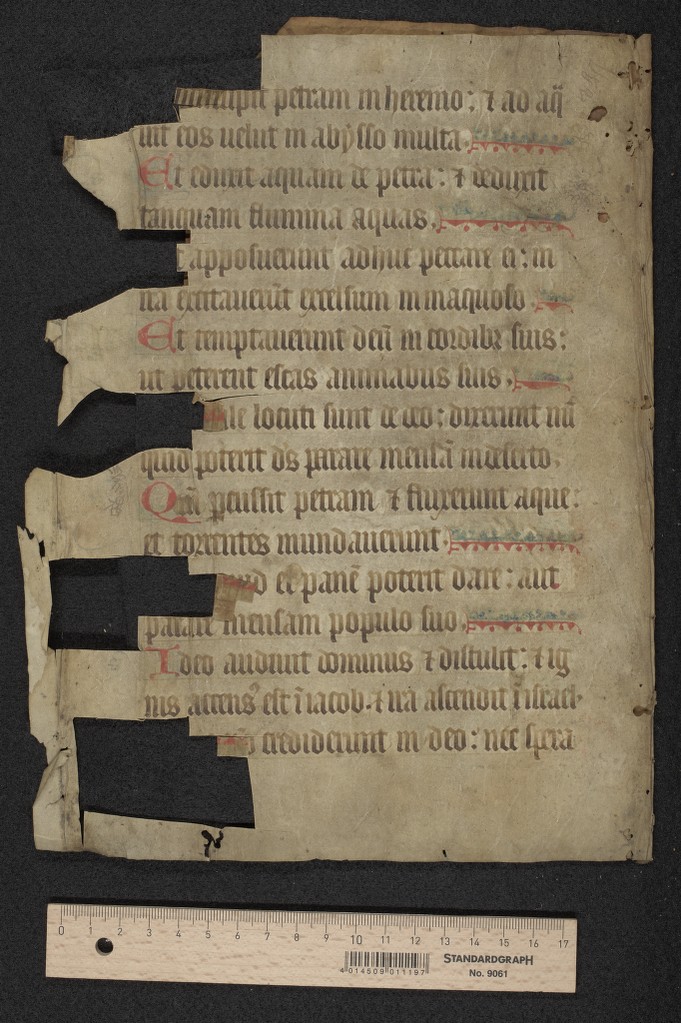 petram in heremo: ⁊ ad aq̃
uit eos uelut in abysso multa.
Et eduxit aquam de petra: ⁊ deduxit
tanquam flumina aquas.
t apposuerunt adhuc peccare ei: in
ira excitauerũt excelsum in inaquoso.
Et temptauerunt deũ in cordibꝫ suis:
ut peterent escas animabus suis.
ale locuti sunt de deo: dixerunt nũ
quid poterit ds parare mensã in deserto.
Qm̃ ꝑcussit petram ⁊ fluxerunt aque:
et torrentes inundauerunt.
et panẽ poterit dare: aut
parare mensam populo suo.
Ideo audiuit dominus ⁊ distulit: ⁊ ig
nis accensꝰ est ĩ iacob. ⁊ ira ascendit ĩ israel.
crediderunt in deo: nec spera
0 1 2 3 4 5 6 7 8 9 10 11 12 13 14 15 16 17
4 014509 011197
STANDARDGRAPH
No. 9061